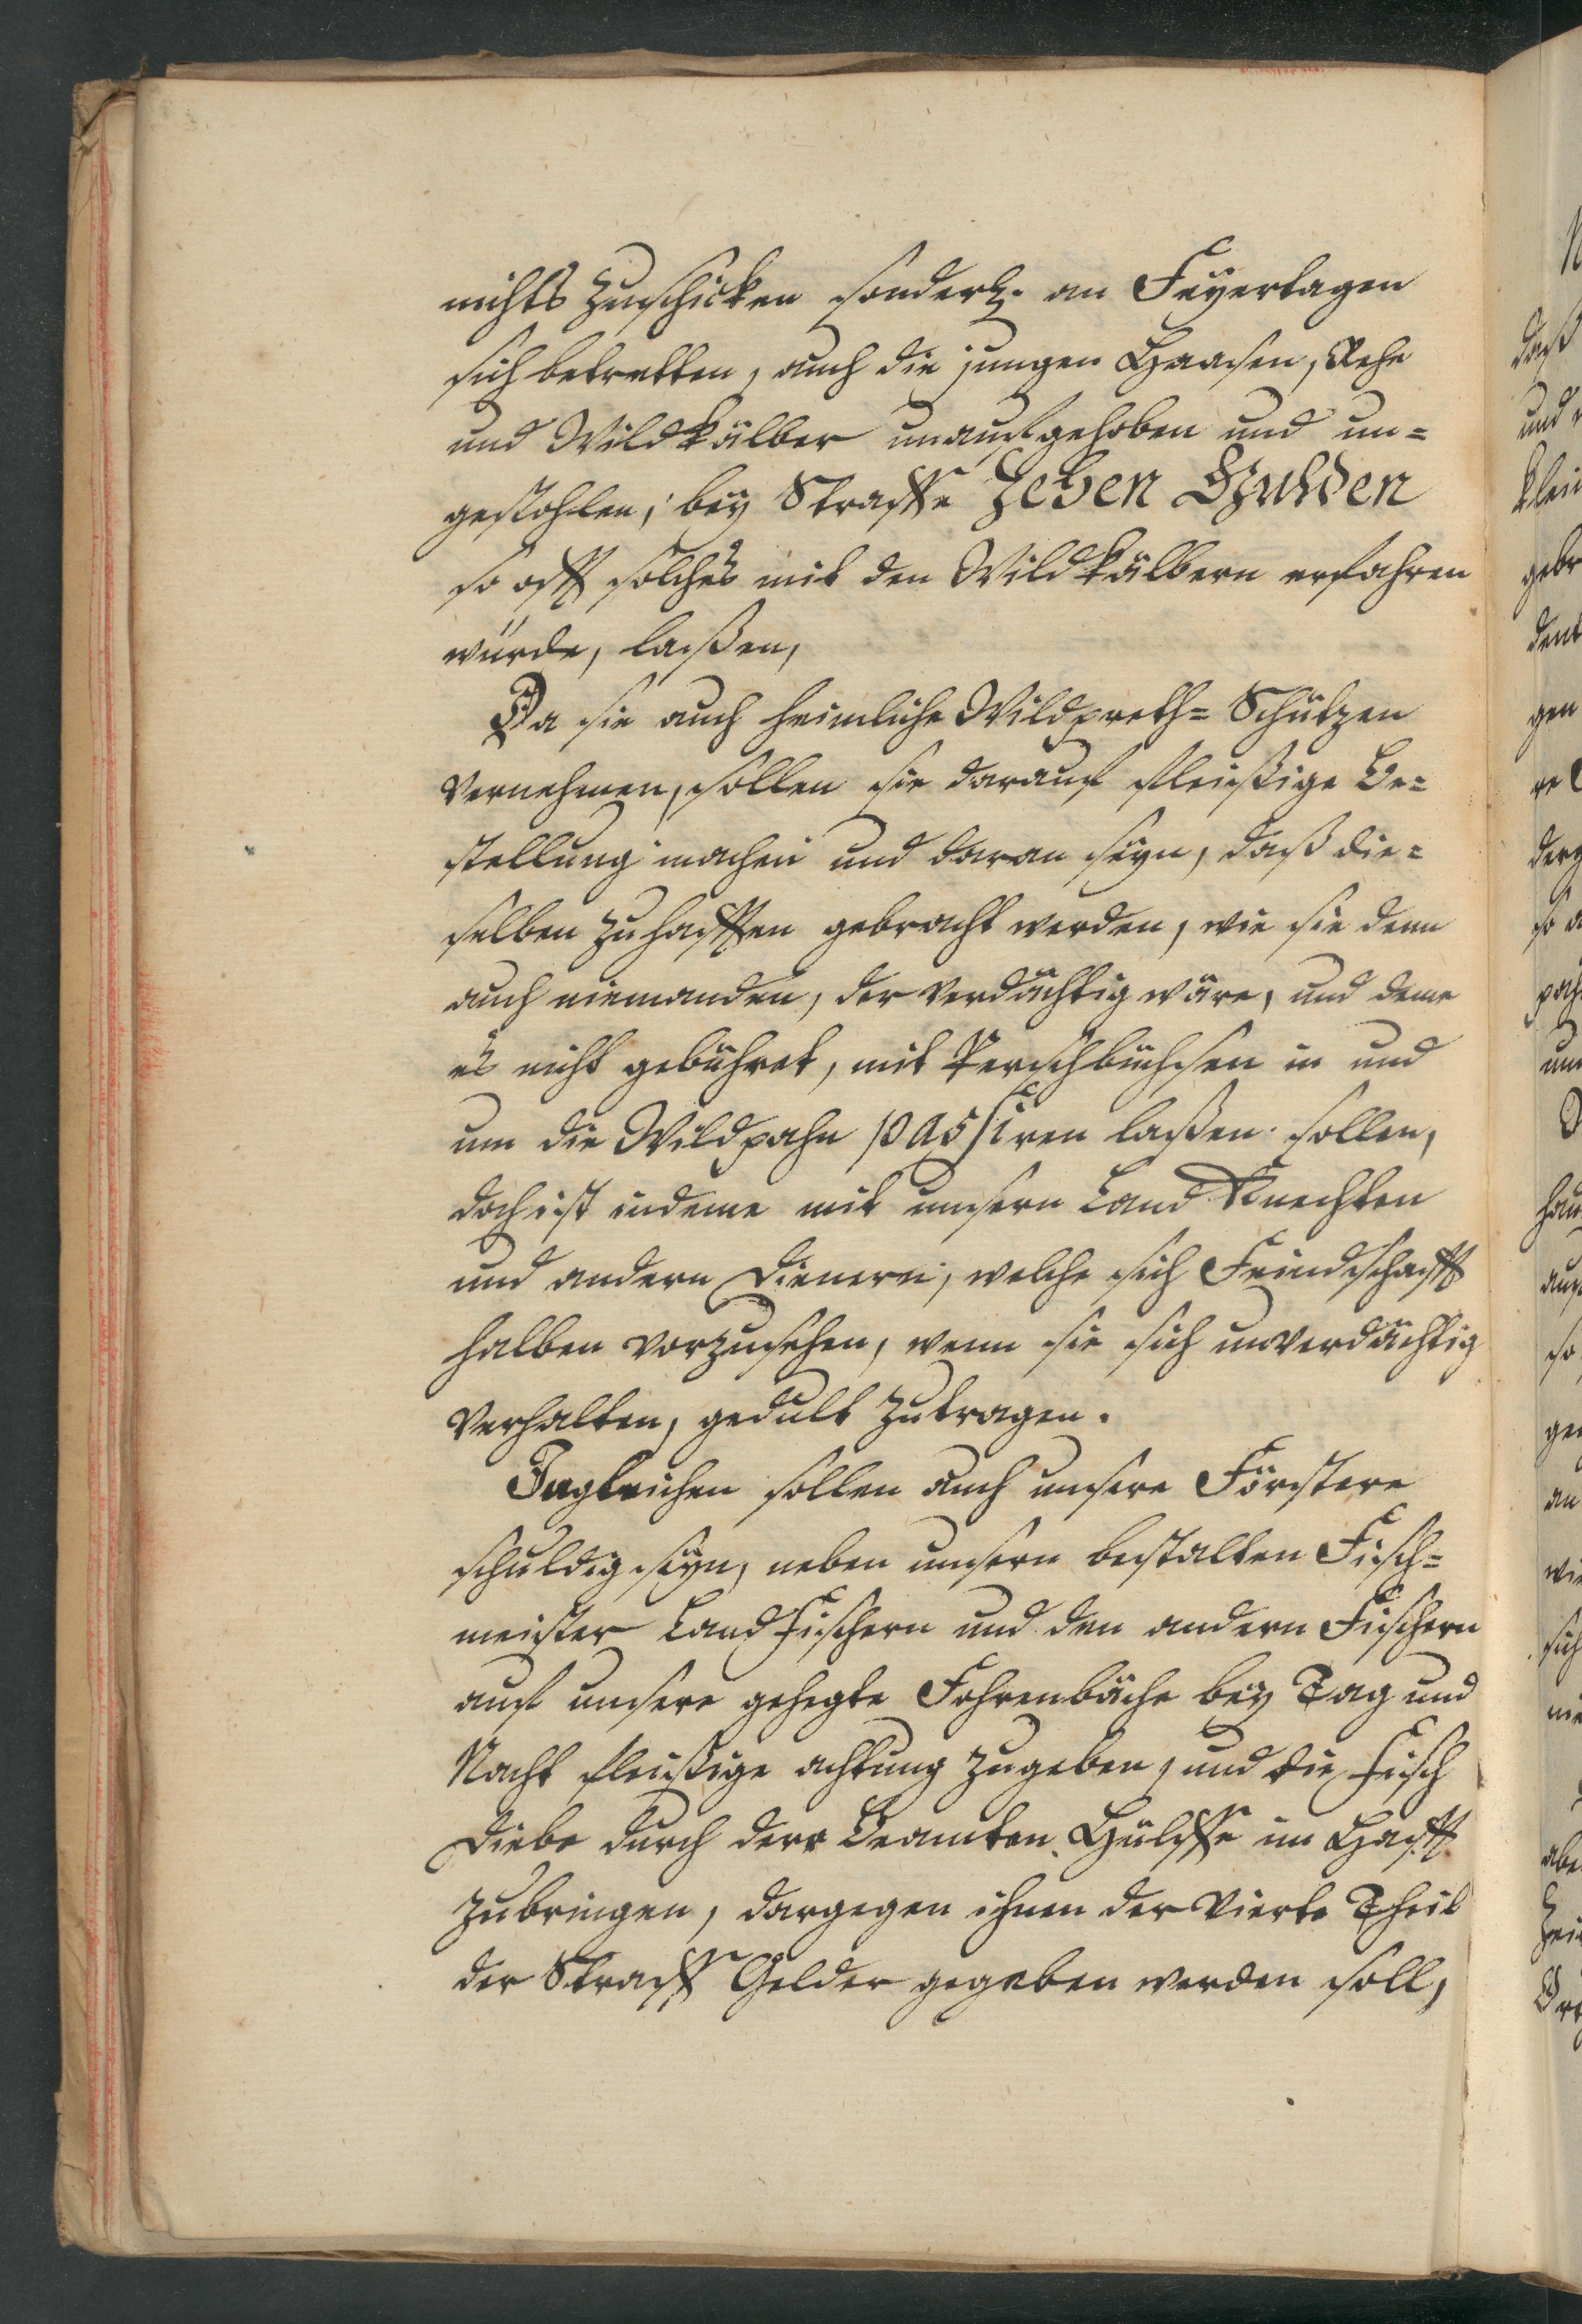 nichts Zuschicken sonderl. an Feyertagen
sich betretten, auch die jungen Haasen, Rehe
und Wildkälber unaufgehoben und un=
gestohlen, bey Straffe Zehen Gulden
so offt solches mit den Wildkälbern erfahren
würde, laßen,
Da sie auch heimliche Wildpreth=Schützen
Vernehmen, sollen sie darauf fleißige Be=
stellung machen und daran seyn, daß die=
selben zuhafften gebracht werden, wie sie denn
auch niemanden, der verdächtig wäre, und deme
es nicht gebühret, mit Perschbüchsen in und
um die Wildpahn passiren laßen sollen,
doch ist indeme mit unsern Land Knechten
und andern Dienern, welche sich Feindschafft
halben vorzusehen, wenn sie sich unverdächtig
Verhalten, gedult zutragen.
Ingleichen sollen auch unsere Förstere
schuldig seyn, neben unsern bestalten Fisch=
meister Land Fischern und den andern Fischern
auf unsere gehegte Fohrenbäche bey Tag und
Nacht fleißige achtung zugeben, und die Fisch
Diebe durch derer Beamten Hülffe in Hafft
zubringen, dargegen ihnen der Vierte Theil
der Straff Gelder gegeben werden soll,